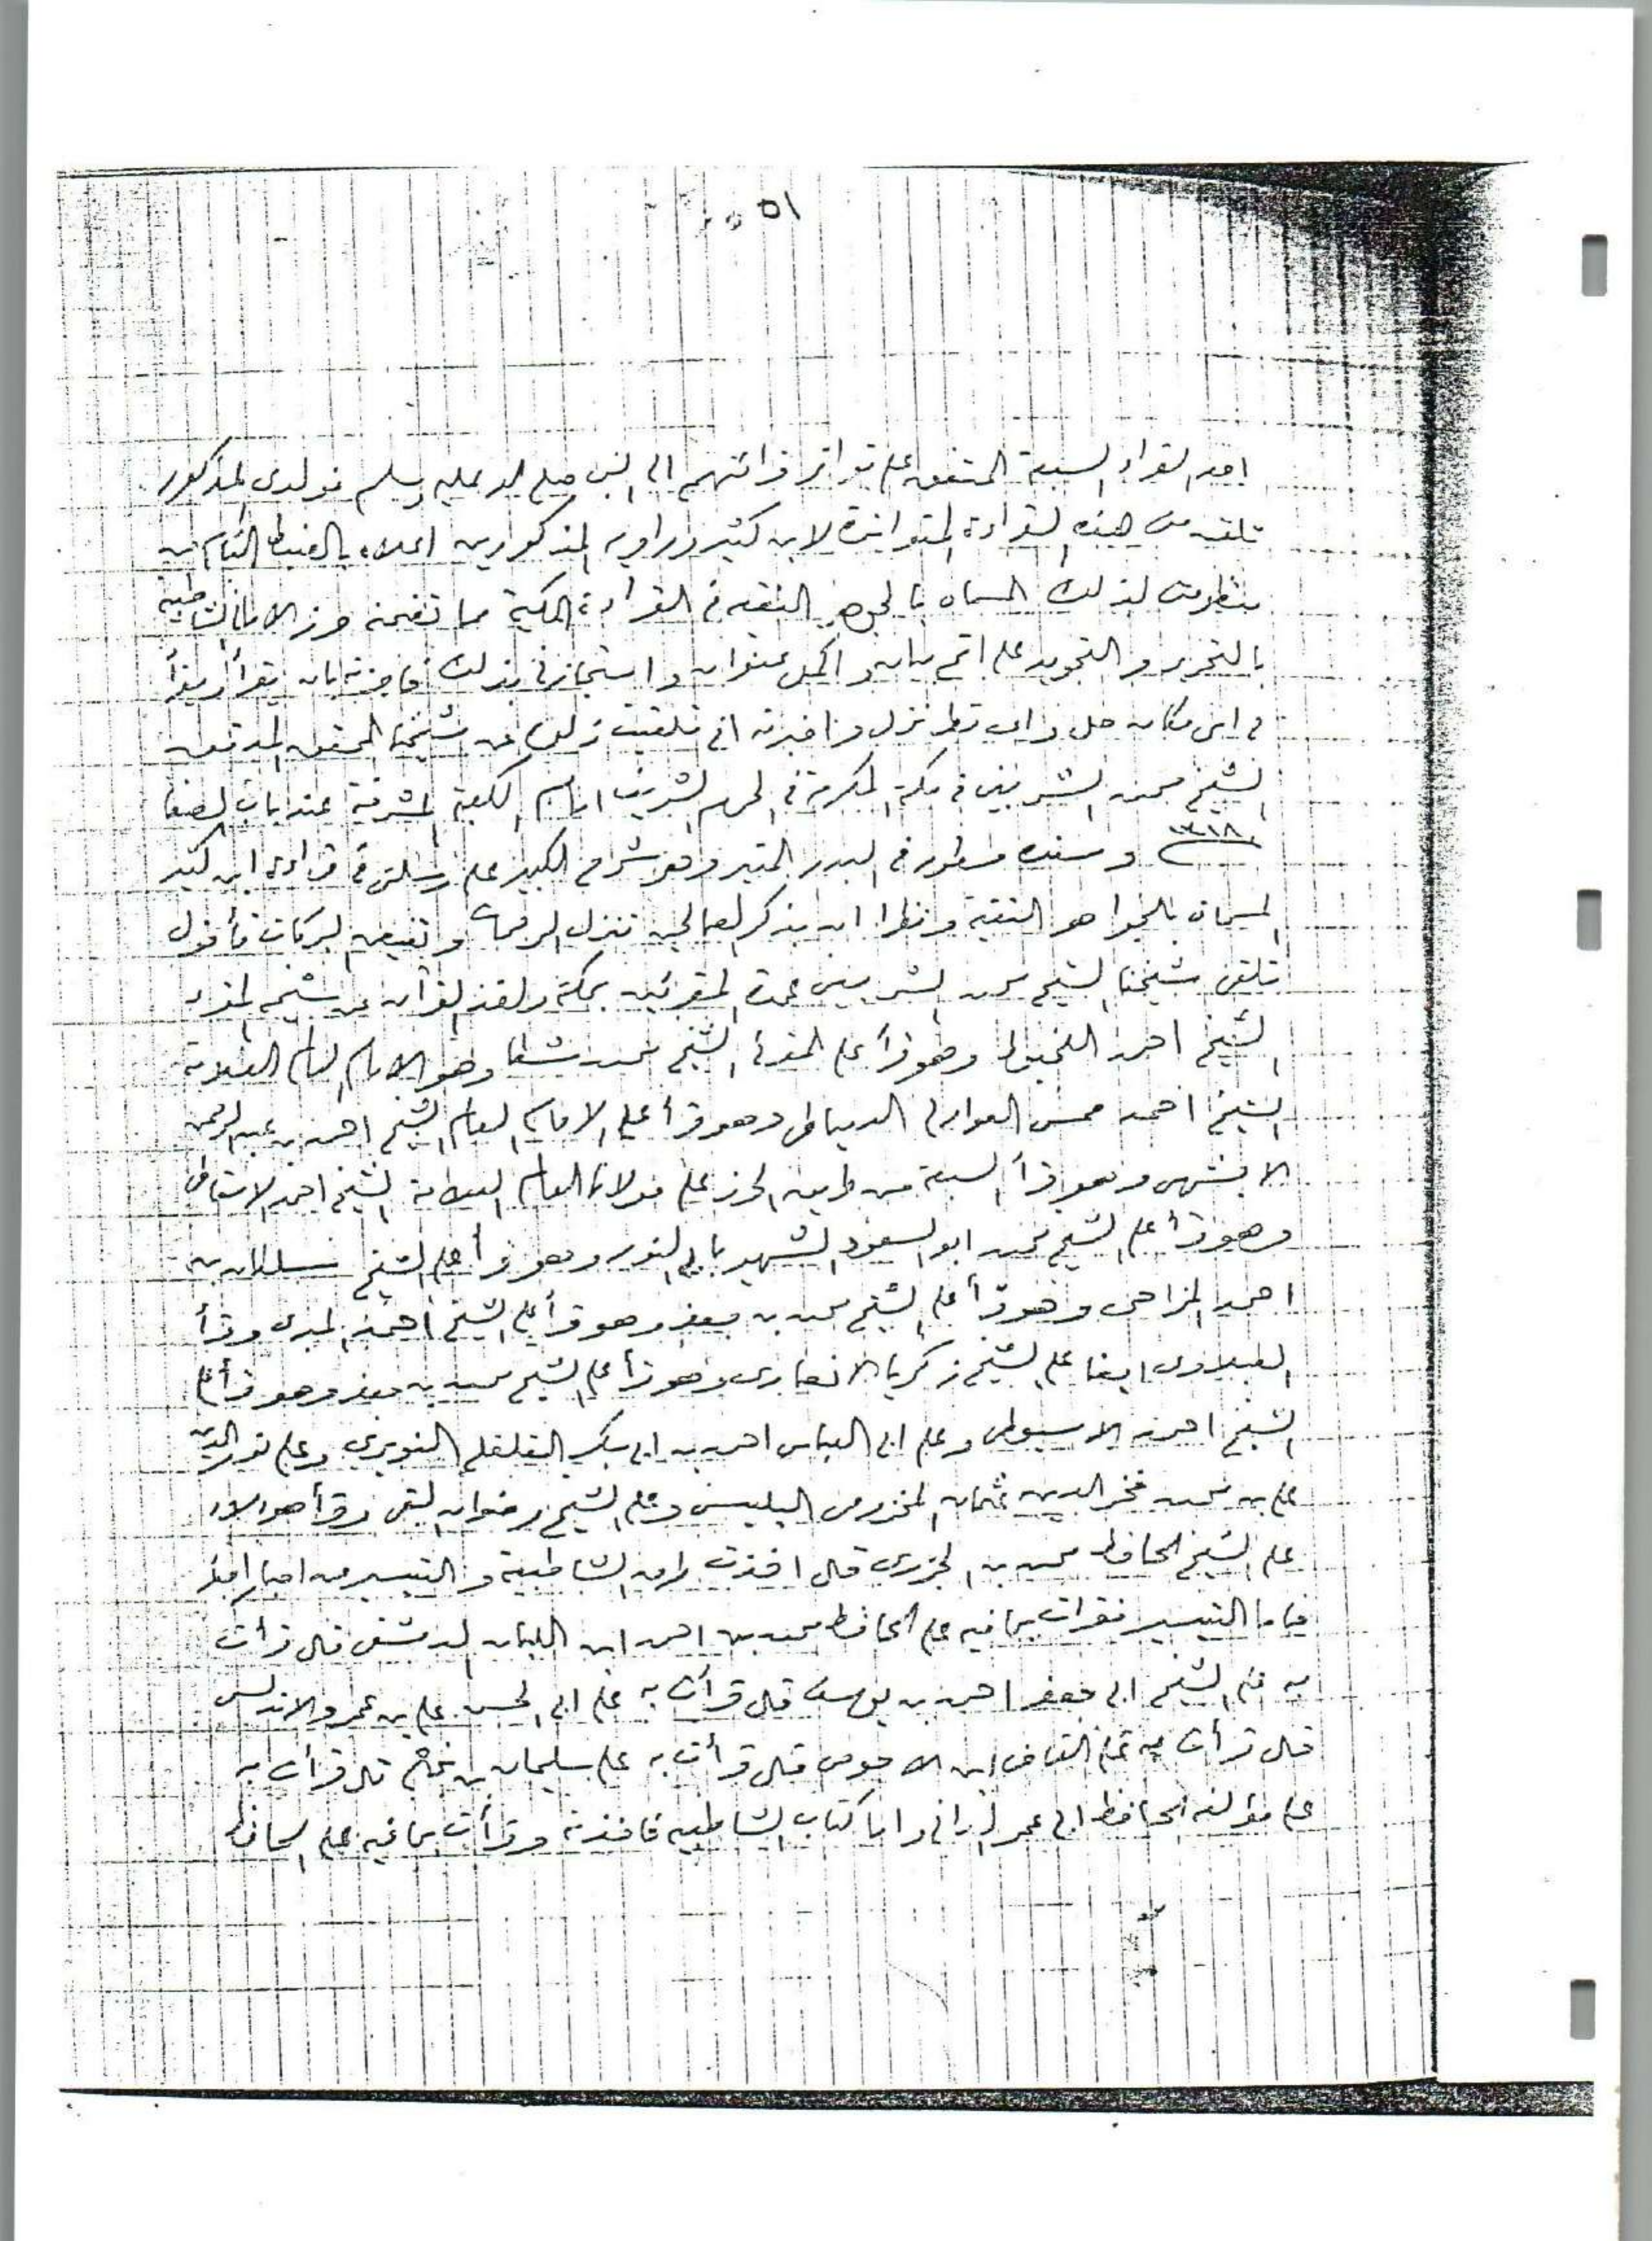 ٥١
احد القراء السبعة المتفق على تواتر قرائتهم الى النبي صلى الله عليه وسلم فولدى المذكور
تلقى منى هذه القراءة المتواترة لابن كثير وراويه المذكورين اعلاه بالضبط التام من
منظومتى لذلك المسماه بالجوهر النقيه فى القراءة المكية مما تضمنه حرز الامانى الشاطبيه
بالتحرير و التجويد على اتم بيان و اكمل عنوان و استجازنى بذلك فاجزته بان يقرأ و يقرأ
فى اى مكان حل و اى قطر نزل و اخبرته انى تلقيت ذلك عن شيخنا المحقق المدقق
الشيخ محمد الشربينى فى مكة المكرمة فى الحرم الشريف امام الكعبة المشرفة عند باب الصفا
١٣١٨ و سنده مسطور فى البدر المنير وهو شرحى الكبير على رسالتى فى قراءة ابن كثير
المسماة بالجواهر النقية ونظرا ان بذكر الصالحين تنزل الرحمات و تفيض البركات فأقول
تلقى شيخنا الشيخ محمد الشربينى عمدة المقرئين بمكة ولقد القرآن عن شيخه المقرء
الشيخ احمد اللخبوط وهو قرأ على المقرئ الشيخ محمد شطا وهو الامام العلامة
الشيخ احمد حسن العوارى الدمياطى وهو قرأ على الامام العام الشيخ احمد بن عبد الرحمن
الابشيهى وهو قرأ السبعة من طريق الحرز على مولانا العالم العلامة الشيخ احمد الاسقاطى
وهو قرأ على الشيخ محمد ابو السعود الشهير بابى النور وهو قرأ على الشيخ سلطان بن
احمد المزاحى وهو قرأ على الشيخ محمد بن جعفر وهو قرأ على الشيخ احمد المسرى وقرأ
الطبلاوى ايضا على الشيخ زكريا الانصارى وهو قرأ على الشيخ محمد بن جعفر وهو قرأ على
الشيخ احمد الاسيوطى وعلى ابى العباس احمد بن ابى بكر القلقلى النويرى وعلى نور الدين
على بن محمد فخر الدين عثمان المخزومى البلبيسى وعلى الشيخ رضوان العقبى وقرأ هؤلاء
على الشيخ الحافظ محمد بن الجزرى قال اخذت طرق الشاطبية و التيسير من
فاما التيسير فقرأت بما فيه على الحافظ محمد بن احمد ابن اللبان الدمشقى قال قرأت
به على الشيخ ابى جعفر احمد بن يوسف قال قرأت به على ابى الحسن على بن عمر والاندلسى
قال قرأت به على القاضى ابن الاحوص قال قرأت به على سليمان بن نجاح قال قرأت به
على مؤلفه الحافظ ابى عمر الدانى واما كتاب الشاطبيه فاخذته وقرأت بما فيه على الحافظ